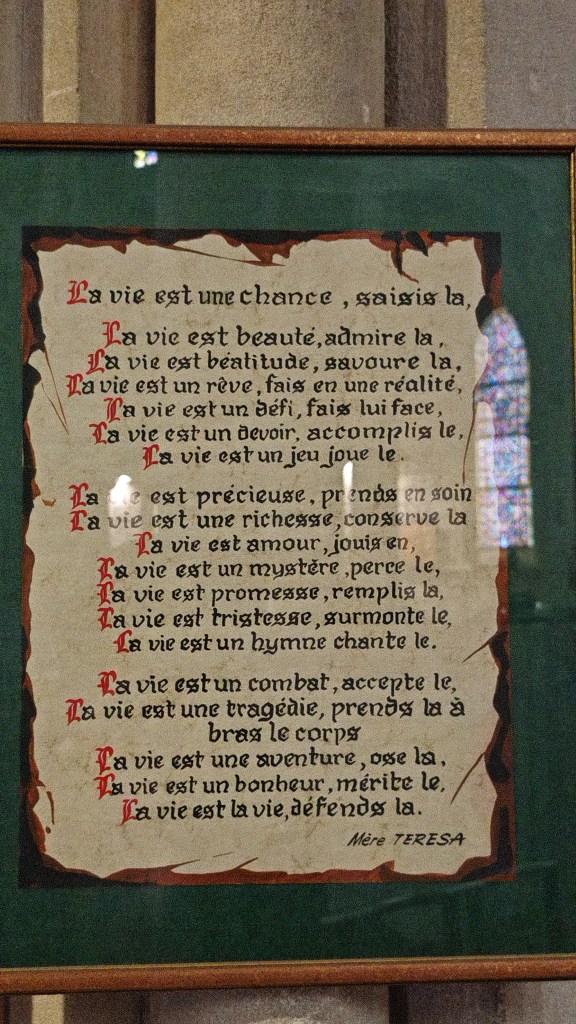 La vie est une chance, saisis la,
La vie est beauté, admire la,
La vie est béatitude, savoure la,
La vie est un rêve, fais en une réalité,
La vie est un défi, fais lui face,
La vie est un devoir, accomplis le,
La vie est un jeu joue le.
La vie est précieuse, prends en soin
La vie est une richesse, conserve la
La vie est amour, jouis en,
La vie est un mystère, perce le,
La vie est promesse, remplis la,
La vie est tristesse, surmonte le,
La vie est un hymne chante le.
La vie est un combat, accepte le,
La vie est une tragédie, prends la à
bras le corps
La vie est une aventure, ose la,
La vie est un bonheur, mérite le,
La vie est la vie, défends la.
Mère TERESA